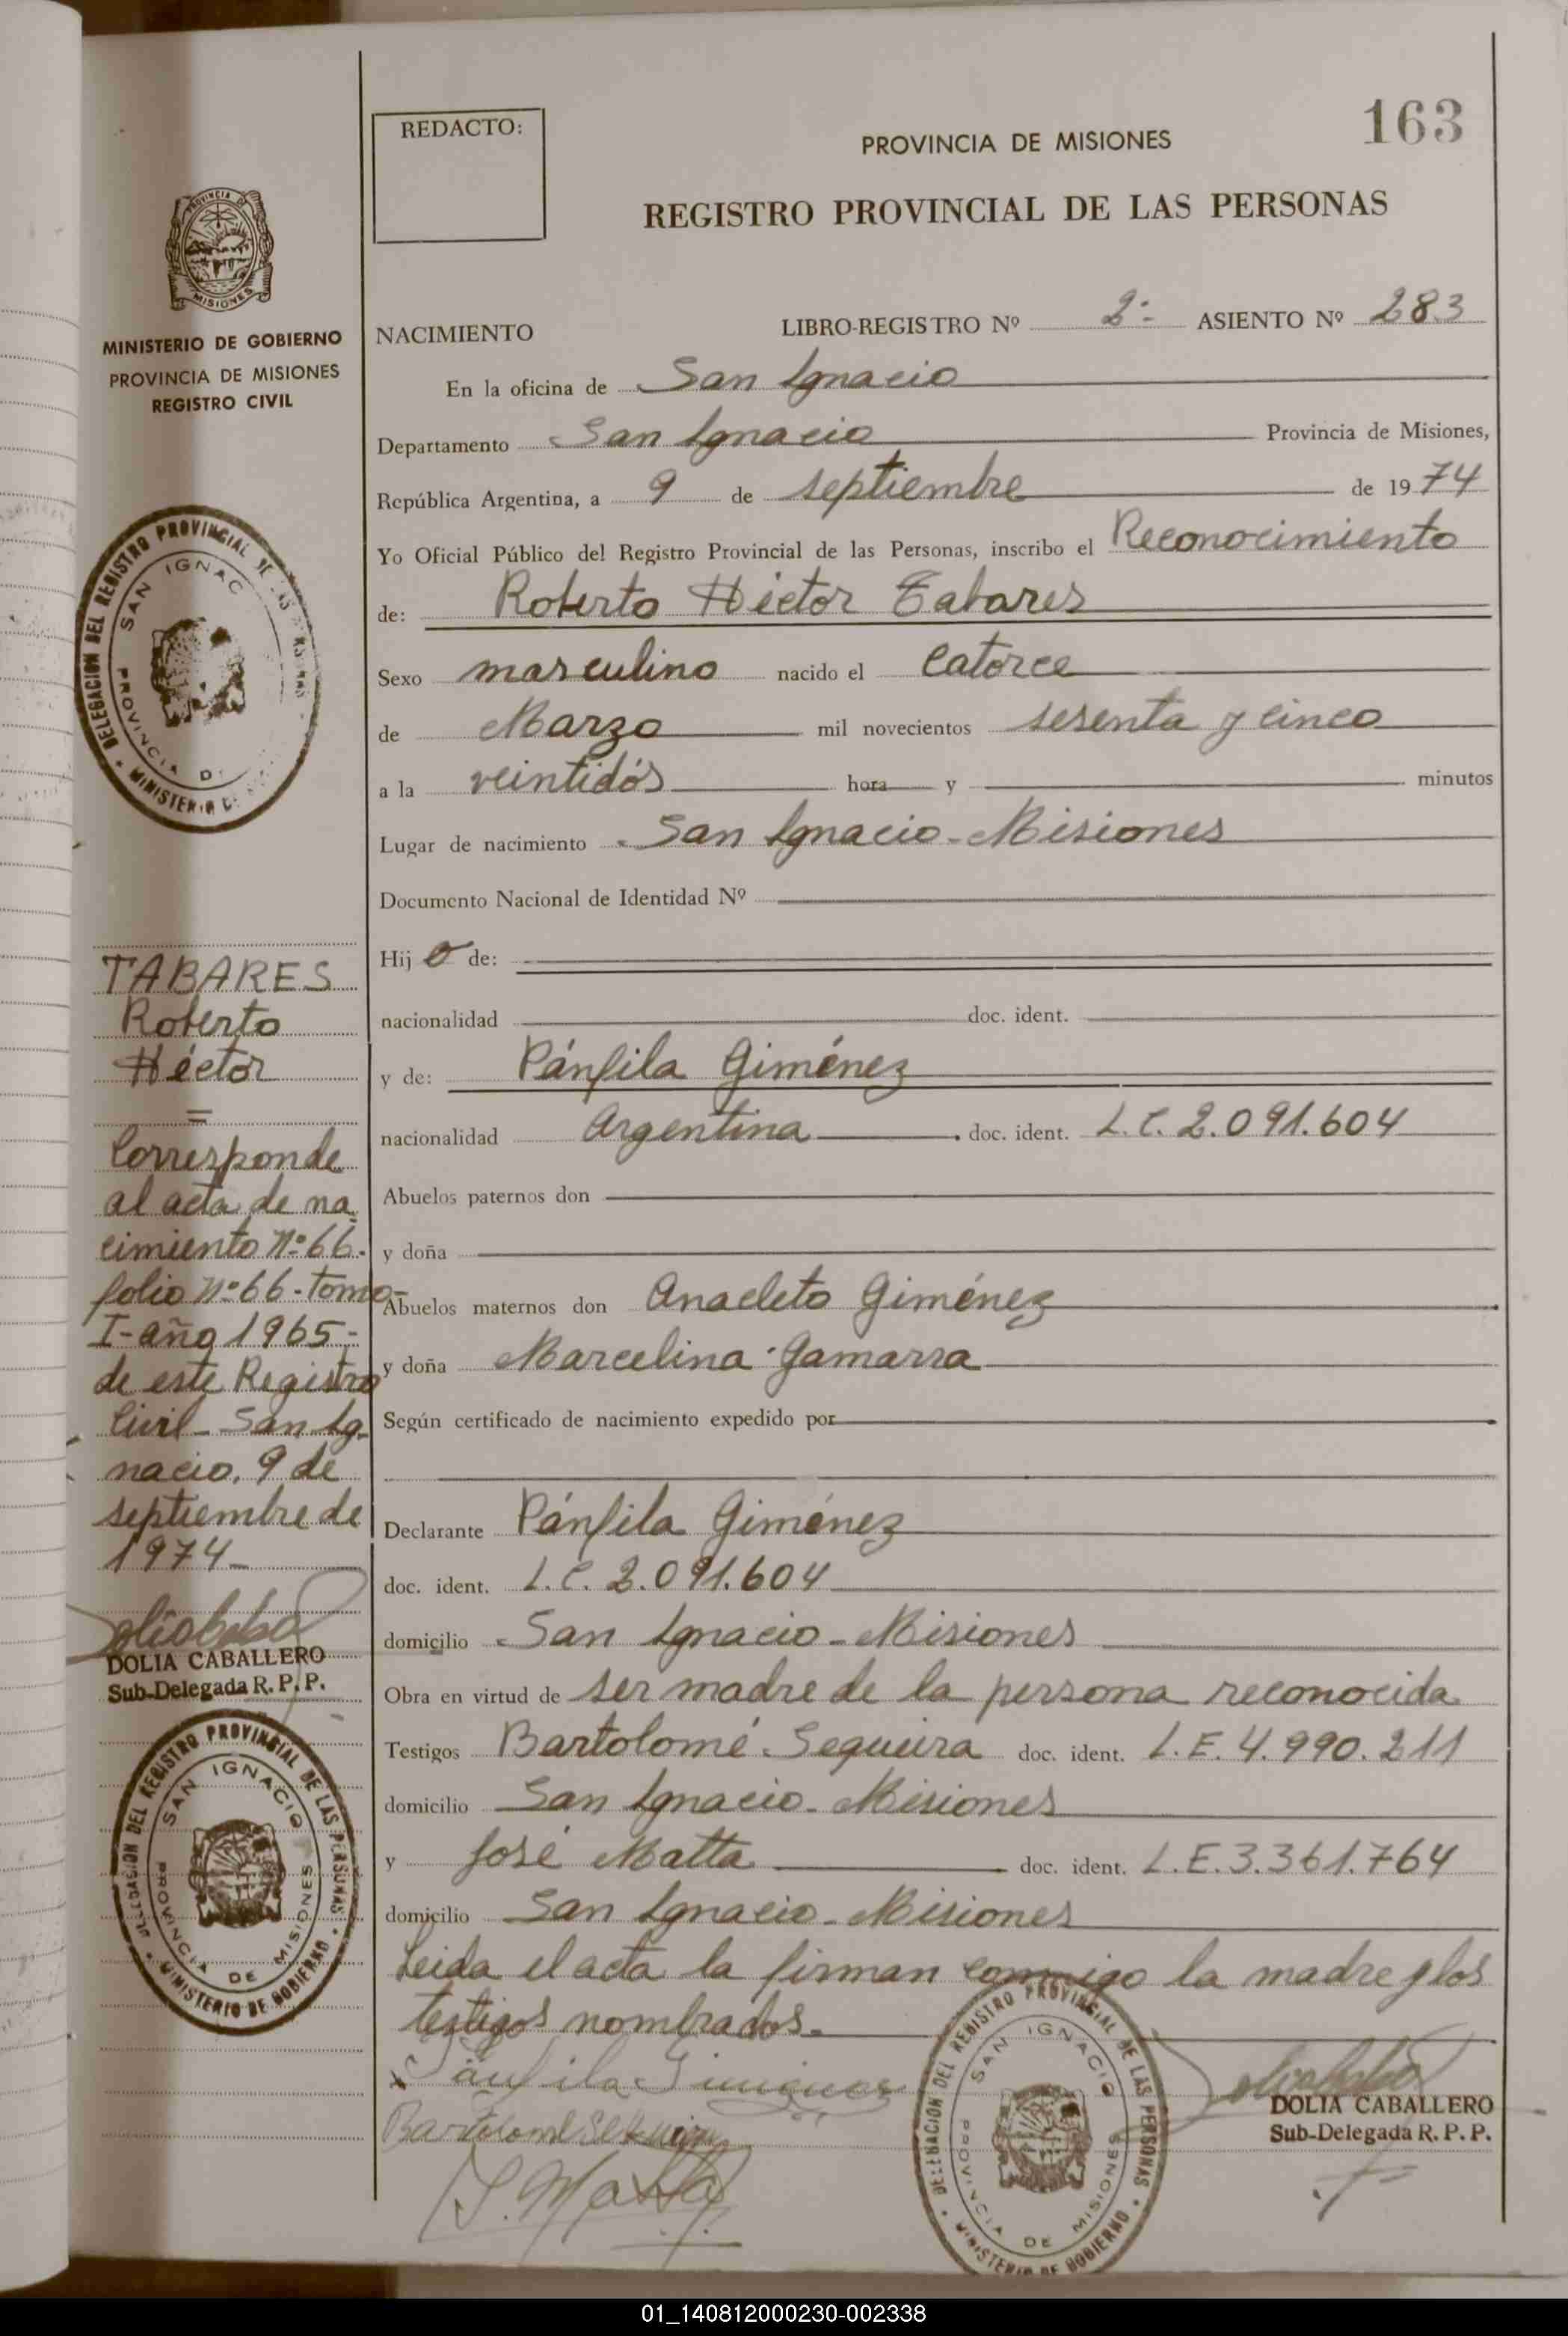 163
REDACTO:
PROVINCIA DE MISIONES
REGISTRO PROVINCIAL DE LAS PERSONAS
PROVINCIA DE
MISIONES
MINISTERIO DE GOBIERNO
PROVINCIA DE MISIONES
REGISTRO CIVIL
NACIMIENTO LIBRO-REGISTRO Nº 2º ASIENTO Nº 283
En la oficina de San Ignacio
Departamento San Ignacio Provincia de Misiones,
República Argentina, a 9 de septiembre de 1974
Yo Oficial Público del Registro Provincial de las Personas, inscribo el Reconocimiento
de: Roberto Héctor Tabares
Sexo masculino nacido el Catorce
de Marzo mil novecientos sesenta y cinco
a la veintidós hora y minutos
Lugar de nacimiento San Ignacio - Misiones
Documento Nacional de Identidad Nº
Hijo de:
nacionalidad doc. ident.
y de: Pánfila Giménez
nacionalidad Argentina doc. ident. L.C. 2.091.604
Abuelos paternos don
y doña
Abuelos maternos don Anacleto Giménez
y doña Marcelina Gamarra
Según certificado de nacimiento expedido por
Declarante Pánfila Giménez
doc. ident. L.C. 2.091.604
domicilio San Ignacio - Misiones
Obra en virtud de ser madre de la persona reconocida
Testigos Bartolomé Sequeira doc. ident. L.E. 4.990.211
domicilio San Ignacio - Misiones
y José Matta doc. ident. L.E. 3.361.764
domicilio San Ignacio - Misiones
Leida el acta la firman conmigo la madre y los
testigos nombrados.
Pánfila Gimenez
Bartolome Sekueira
J. Matta
DOLIA CABALLERO
Sub-Delegada R. P. P.
DELEGACION DEL REGISTRO PROVINCIAL DE LAS PERSONAS
MINISTERIO DE GOBIERNO
SAN IGNACIO
PROVINCIA DE MISIONES
DELEGACION DEL REGISTRO PROVINCIAL DE
SAN IGNAC
PROVINCIA D
MINISTERIO
TABARES
Roberto
Héctor
=
Corresponde
al acta de na
cimiento Nº 66.
folio Nº 66 - tomo -
I - año 1965 -
de este Registro
Civil - San Ig
nacio, 9 de
septiembre de
1974 -
DOLIA CABALLERO
Sub-Delegada R. P. P.
DELEGACION DEL REGISTRO PROVINCIAL DE LAS PERSONAS
MINISTERIO DE GOBIERNO
SAN IGNACIO
PROVINCIA DE MISIONES
01_140812000230-002338